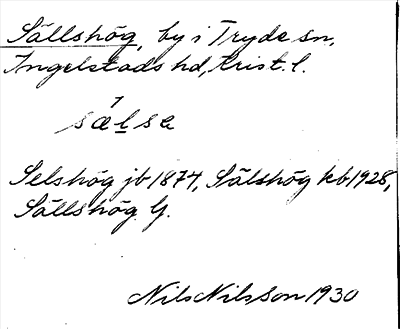 Sällshög, by i Tryde sn,
Ingelstads hd, Krist. l.
sælsa
Selshög jb 1874, Sälshög kb 1928,
Sällshög G.
Nils Nilsson 1930